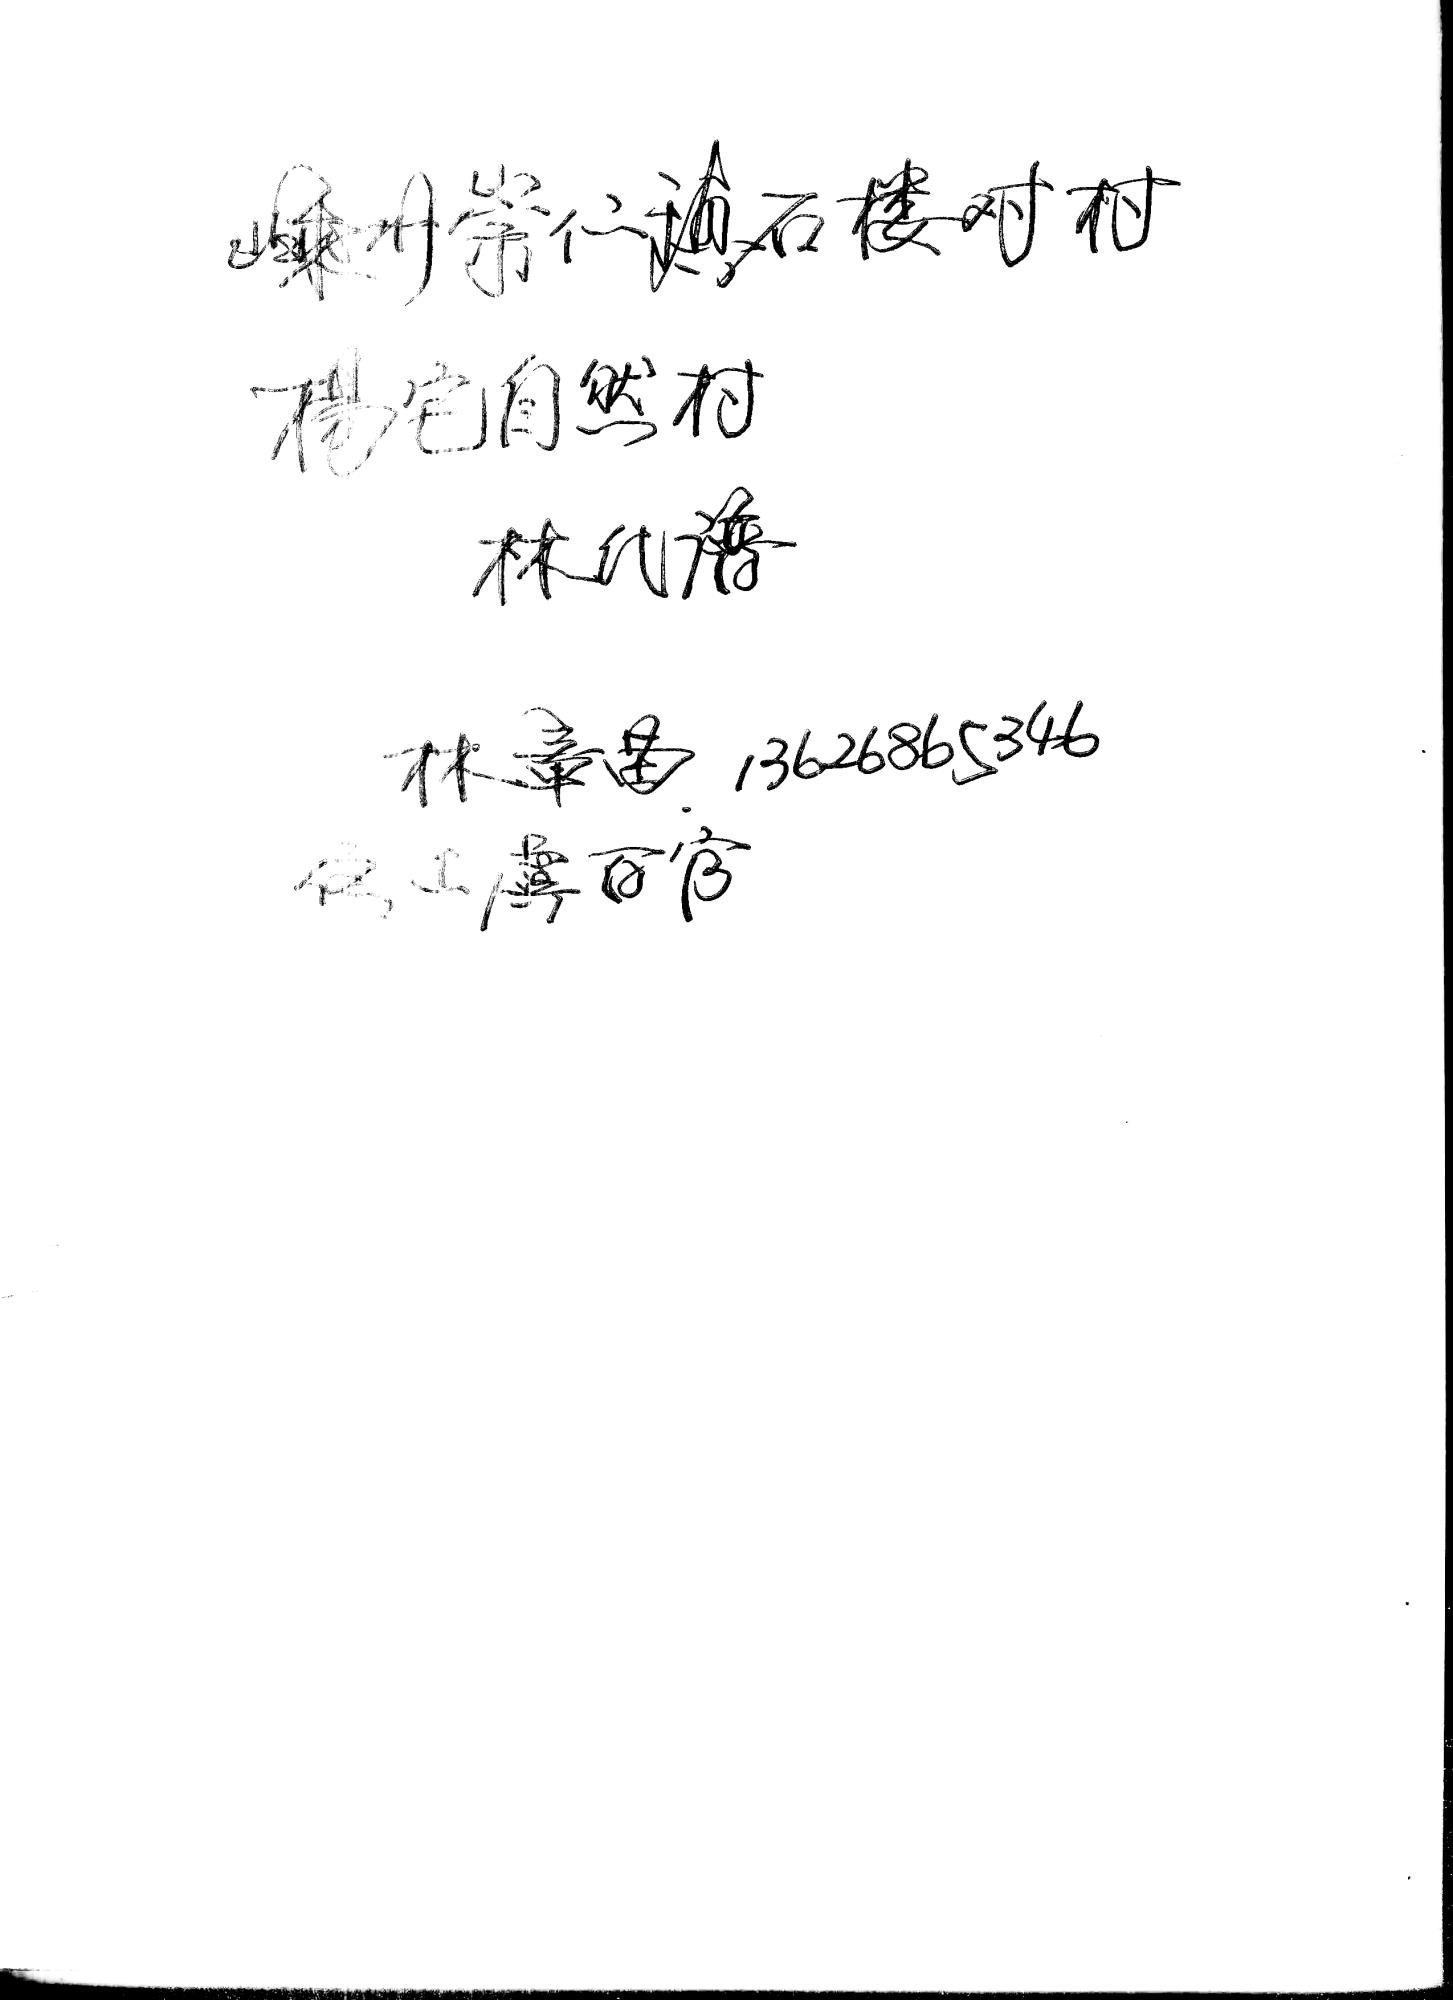 嵊州崇仁镇石楼对村
楊宅自然村
林氏谱
林章苗 13626865346
住上虞百官